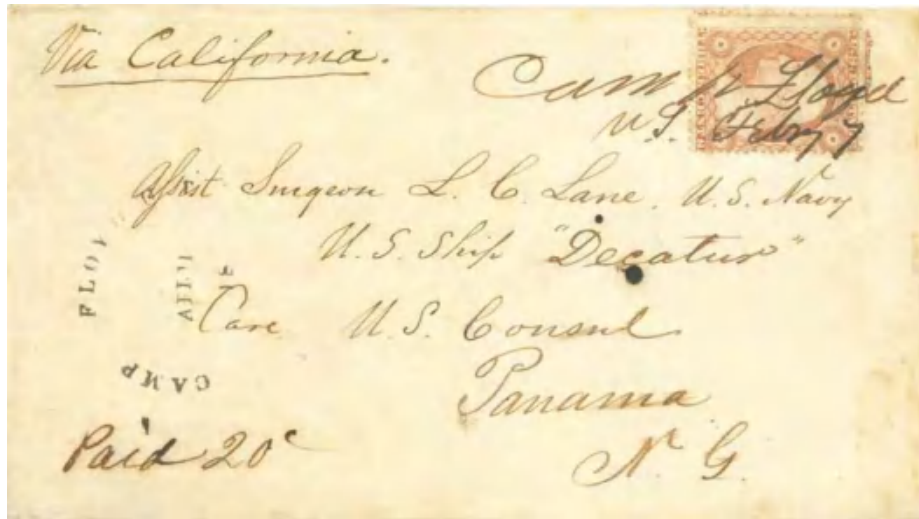 Via California.
Camp Floyd
U.S. Febry 7
Assist Surgeon L. C. Lane. U.S. Navy
U.S. Ship "Decatur"
Care U.S. Consul
Panama
N. G.
Paid 20c
CAMP FLOYD